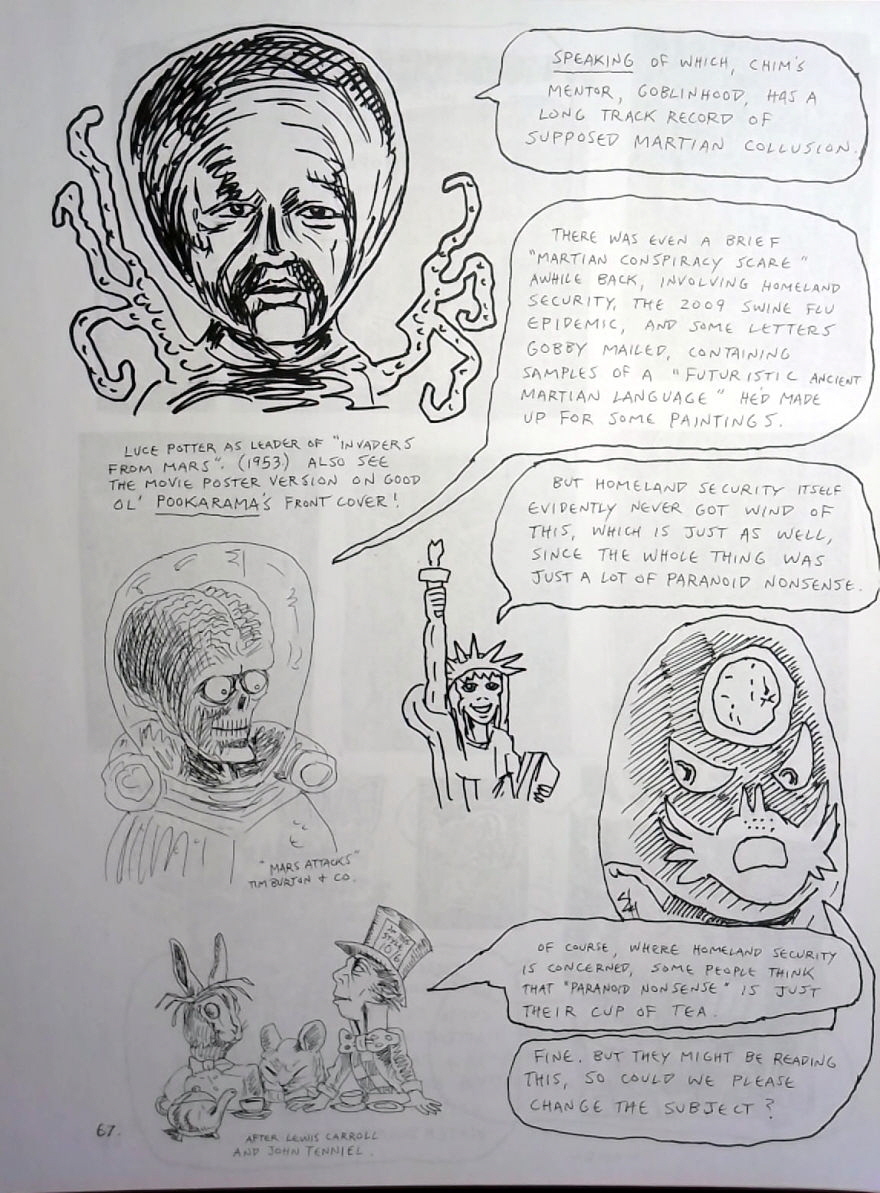 SPEAKING OF WHICH, CHIM'S
MENTOR, GOBLINHOOD, HAS A
LONG TRACK RECORD OF
SUPPOSED MARTIAN COLLUSION.
THERE WAS EVEN A BRIEF
"MARTIAN CONSPIRACY SCARE"
AWHILE BACK, INVOLVING HOMELAND
SECURITY, THE 2009 SWINE FLU
EPIDEMIC, AND SOME LETTERS
GOBBY MAILED, CONTAINING
SAMPLES OF A "FUTURISTIC ANCIENT
MARTIAN LANGUAGE" HE'D MADE
UP FOR SOME PAINTINGS.
LUCE POTTER AS LEADER OF "INVADERS
FROM MARS". (1953.) ALSO SEE
THE MOVIE POSTER VERSION ON GOOD
OL' POOKARAMA'S FRONT COVER!
BUT HOMELAND SECURITY ITSELF
EVIDENTLY NEVER GOT WIND OF
THIS, WHICH IS JUST AS WELL,
SINCE THE WHOLE THING WAS
JUST A LOT OF PARANOID NONSENSE.
"MARS ATTACKS"
TIM BURTON & CO.
IN THIS
STYLE
10/6
OF COURSE, WHERE HOMELAND SECURITY
IS CONCERNED, SOME PEOPLE THINK
THAT "PARANOID NONSENSE" IS JUST
THEIR CUP OF TEA.
FINE. BUT THEY MIGHT BE READING
THIS, SO COULD WE PLEASE
CHANGE THE SUBJECT?
67.
AFTER LEWIS CARROLL
AND JOHN TENNIEL.